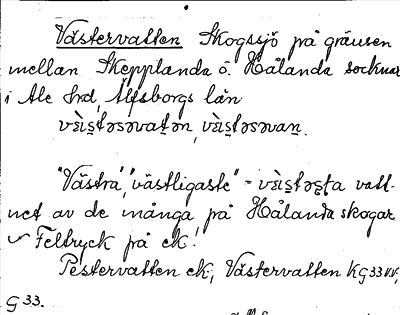 Västervatten Skogssjö på gränsen
mellan Skepplanda o. Hålanda socknar
i Ale hrd, Älfsborgs län
vèi̯stəsəvatən, vèi̯stəsəvan.
"Västra", "västligaste" = vèi̯stəsta vatt-
net av de många på Hålanda skogar
Feltryck på ek!
Pestervatten ek, Västervatten KG33NV,
G 33.